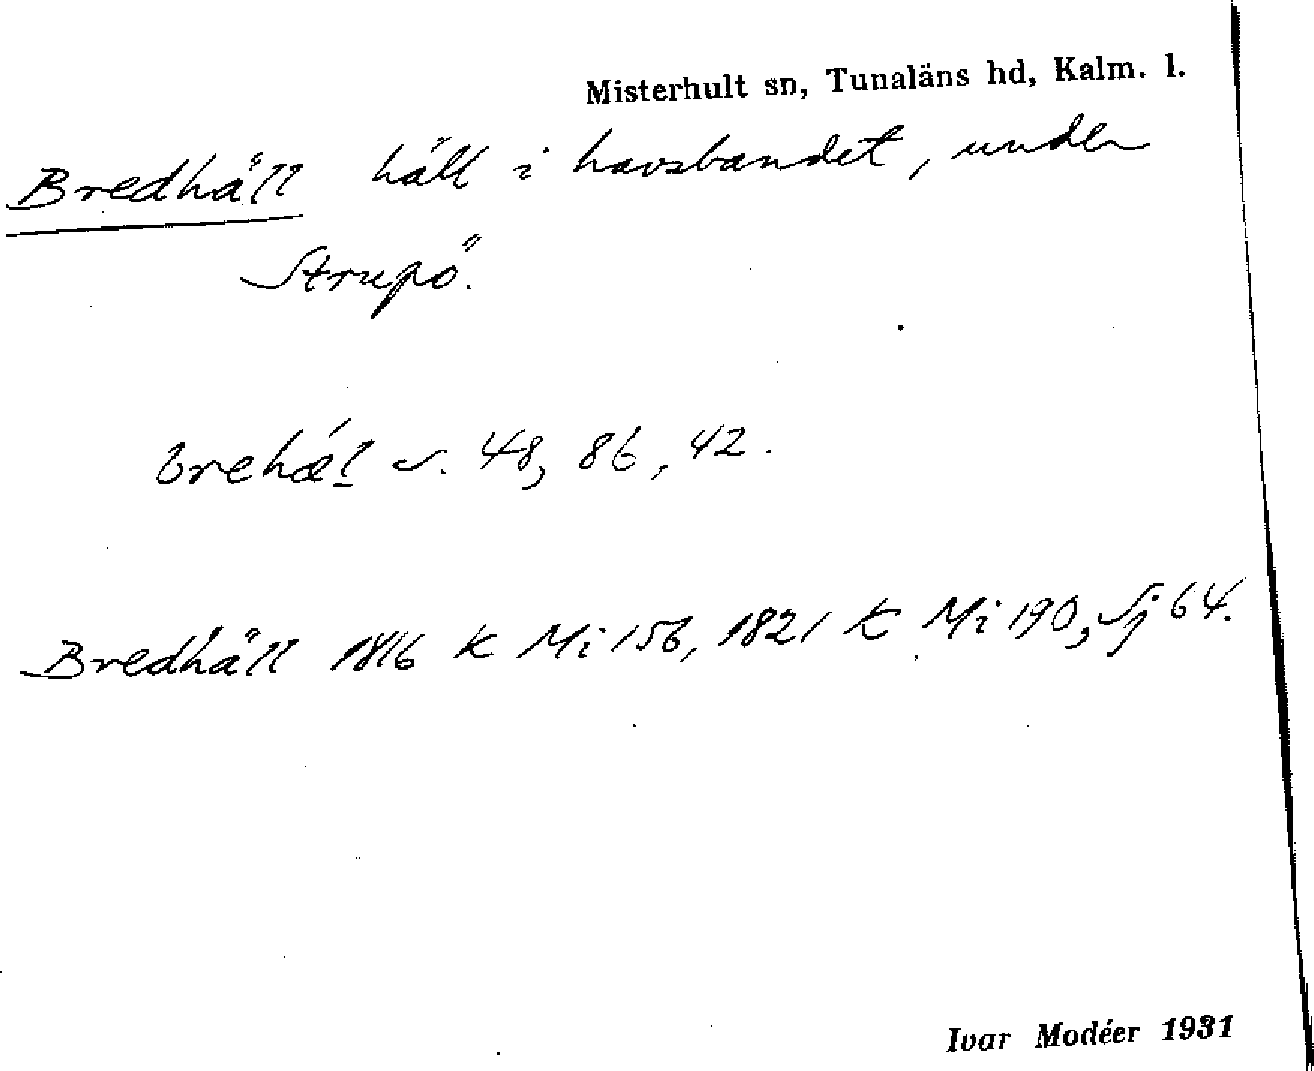 Misterhult sn, Tunaläns hd, Kalm. l.
Bredhäll häll i havsbandet, under
Strupö.
brehæ´l s. 48, 86, 42.
Bredhäll 1816 k Mi 156, 1821 k Mi 190, Sj 64.
Ivar Modéer 1931